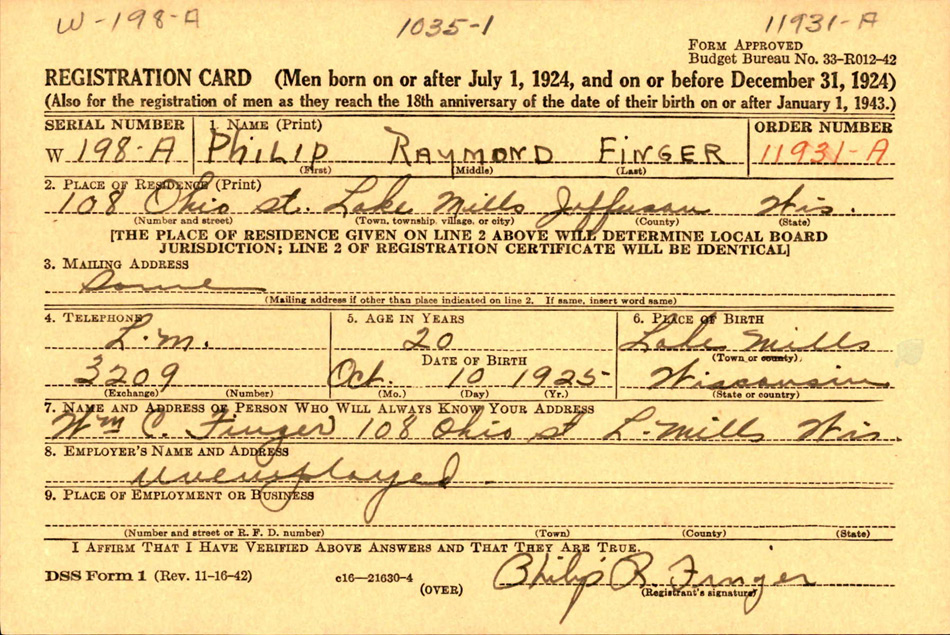 W-198-A 1035-1 11931-A
FORM APPROVED
Budget Bureau No. 33-R012-42
REGISTRATION CARD (Men born on or after July 1, 1924, and on or before December 31, 1924)
(Also for the registration of men as they reach the 18th anniversary of the date of their birth on or after January 1, 1943.)
SERIAL NUMBER 1. NAME (Print) ORDER NUMBER
W 198-A PHILIP RAYMOND FINGER 11931-A
(First) (Middle) (Last)
2. PLACE OF RESIDENCE (Print)
108 Ohio st. Lake Mills Jefferson Wis.
(Number and street) (Town, township, village, or city) (County) (State)
[THE PLACE OF RESIDENCE GIVEN ON LINE 2 ABOVE WILL DETERMINE LOCAL BOARD
JURISDICTION; LINE 2 OF REGISTRATION CERTIFICATE WILL BE IDENTICAL]
3. MAILING ADDRESS
Same
(Mailing address if other than place indicated on line 2. If same, insert word same)
4. TELEPHONE 5. AGE IN YEARS 6. PLACE OF BIRTH
L.M. 20 Lake Mills
DATE OF BIRTH (Town or county)
3209 Oct. 10 1925 Wisconsin
(Exchange) (Number) (Mo.) (Day) (Yr.) (State or country)
7. NAME AND ADDRESS OF PERSON WHO WILL ALWAYS KNOW YOUR ADDRESS
Wm C. Finger 108 Ohio st L. Mills Wis.
8. EMPLOYER'S NAME AND ADDRESS
Unemployed.
9. PLACE OF EMPLOYMENT OR BUSINESS
(Number and street or R. F. D. number) (Town) (County) (State)
I AFFIRM THAT I HAVE VERIFIED ABOVE ANSWERS AND THAT THEY ARE TRUE.
DSS Form 1 (Rev. 11-16-42) c16—21630-4 (OVER) Philip R. Finger
(Registrant's signature)